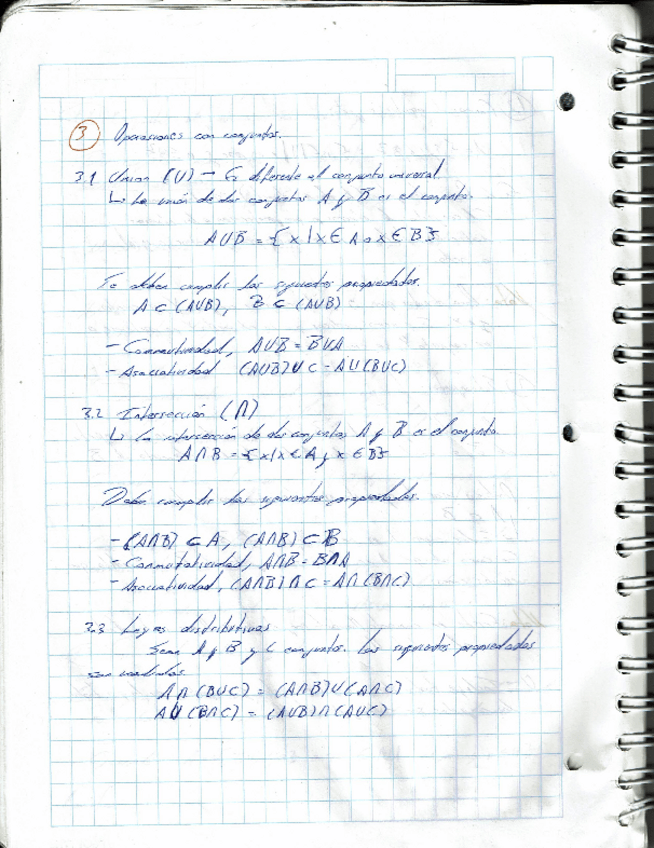 3 Operaciones con conjuntos.
3.1 Union (U) → Es diferente al conjunto universal
↳ La unión de dos conjuntos A y B es el conjunto.
AUB = {x|x∈A o x∈B}
Se deben cumplir las siguientes propiedades.
A⊂(AUB), B⊂(AUB)
- Conmutividad, AUB = BUA
- Asociatividad (AUB)UC = AU(BUC)
3.2 Intersección (∩)
↳ La intersección de dos conjuntos A y B es el conjunto
A∩B = {x|x∈A y x∈B}
Debe cumplir las siguientes propiedades.
- (A∩B)⊂A, (A∩B)⊂B
- Conmutatividad, A∩B = B∩A
- Asociatividad, (A∩B)∩C = A∩(B∩C)
3.3 Leyes distributivas
Sean A y B y C conjuntos. Las siguientes propiedades
son
A∩(BUC) = (A∩B)U(A∩C)
AU(B∩C) = (AUB)∩(AUC)